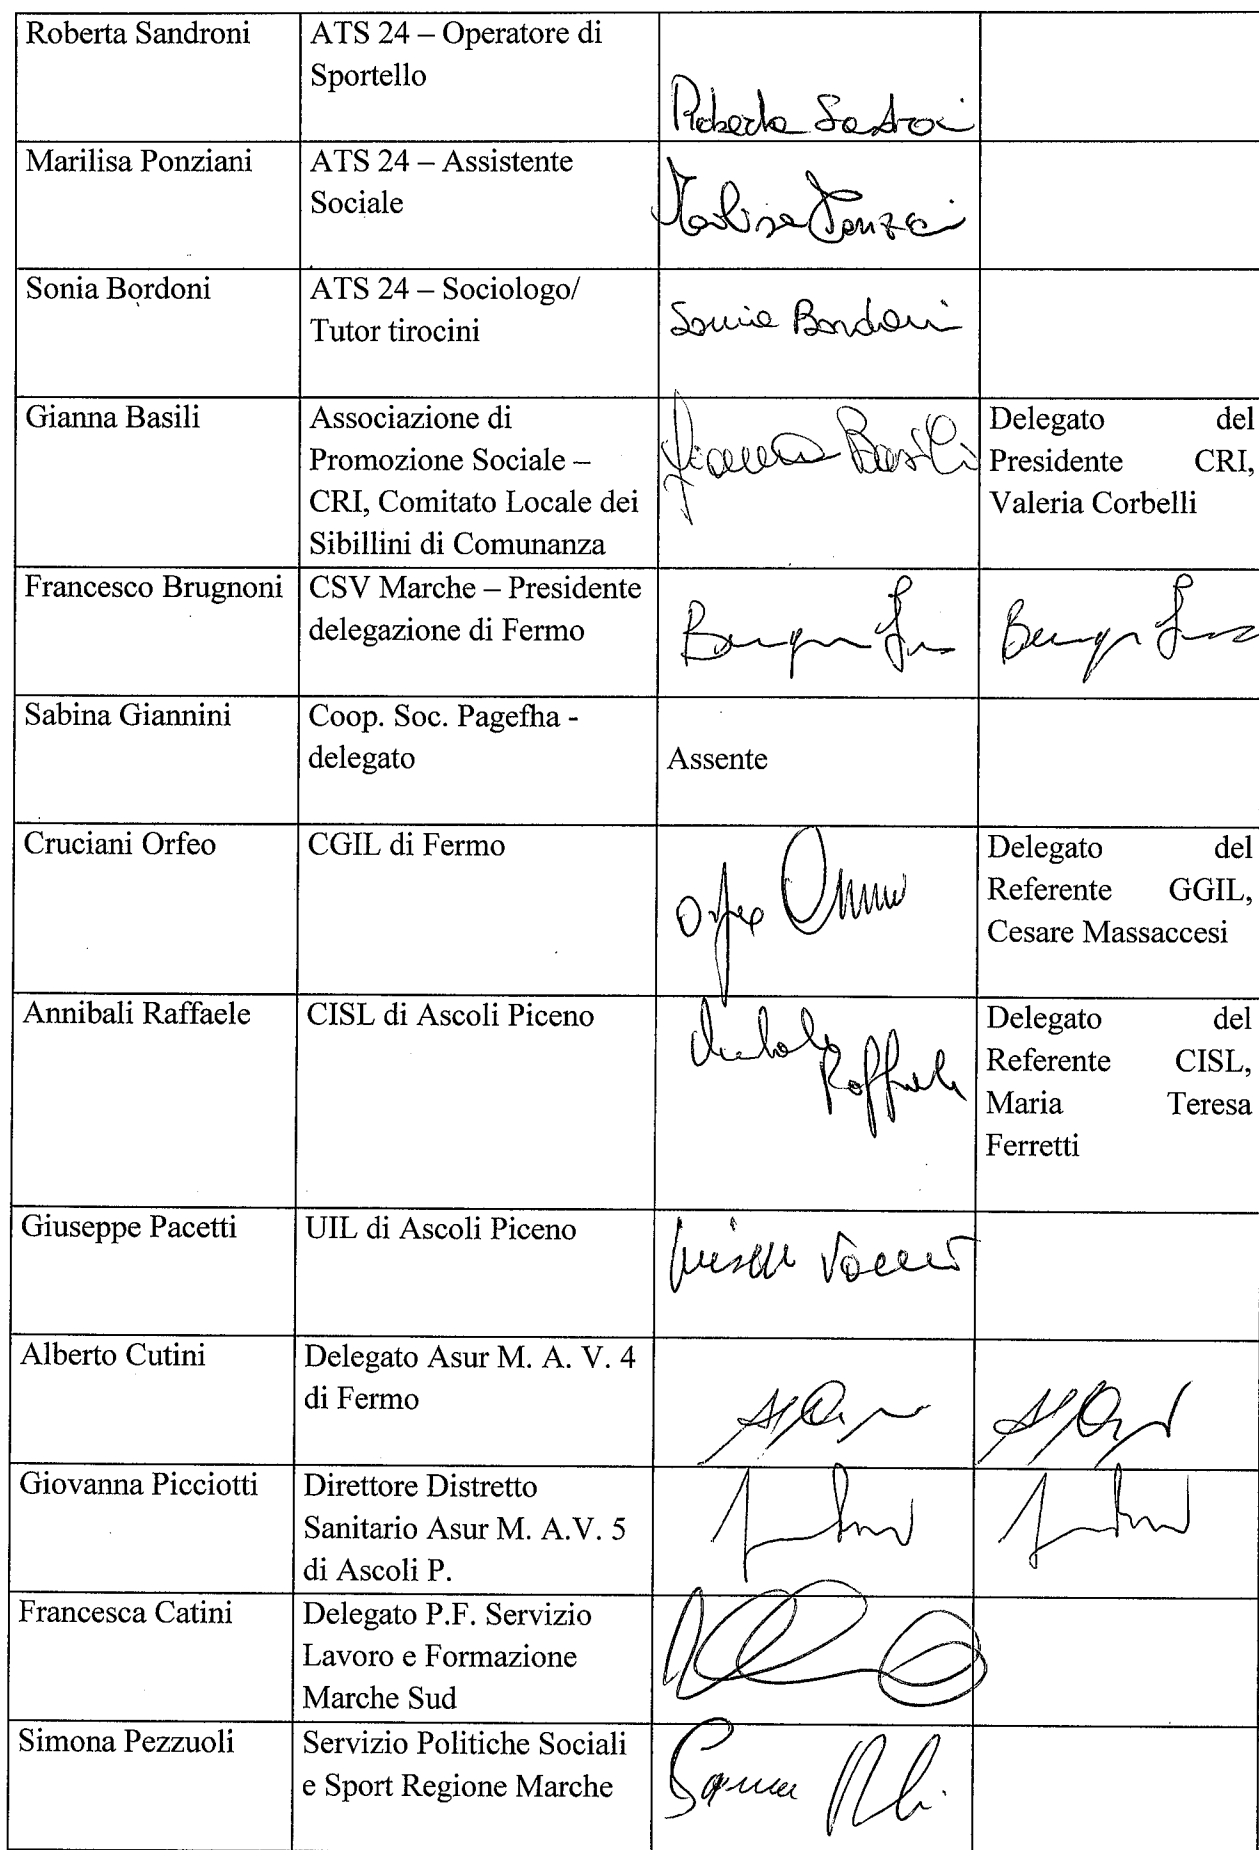 Roberta Sandroni
ATS 24 – Operatore di
Sportello
Marilisa Ponziani
ATS 24 – Assistente
Sociale
Sonia Bordoni
ATS 24 – Sociologo/
Tutor tirocini
Sonia Bordoni
Gianna Basili
Associazione di
Promozione Sociale –
CRI, Comitato Locale dei
Sibillini di Comunanza
Gianna Basili
Delegato del
Presidente CRI,
Valeria Corbelli
Francesco Brugnoni
CSV Marche – Presidente
delegazione di Fermo
Sabina Giannini
Coop. Soc. Pagefha -
delegato
Assente
Cruciani Orfeo
CGIL di Fermo
Orfeo
Delegato del
Referente GGIL,
Cesare Massaccesi
Annibali Raffaele
CISL di Ascoli Piceno
Raffaele
Delegato del
Referente CISL,
Maria Teresa
Ferretti
Giuseppe Pacetti
UIL di Ascoli Piceno
Alberto Cutini
Delegato Asur M. A. V. 4
di Fermo
Giovanna Picciotti
Direttore Distretto
Sanitario Asur M. A.V. 5
di Ascoli P.
Francesca Catini
Delegato P.F. Servizio
Lavoro e Formazione
Marche Sud
Simona Pezzuoli
Servizio Politiche Sociali
e Sport Regione Marche